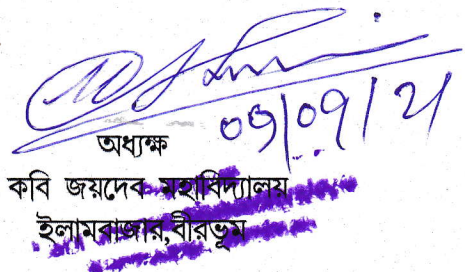 অধ্যক্ষ
কবি জয়দেব মহাবিদ্যালয়
ইলামবাজার,বীরভূম